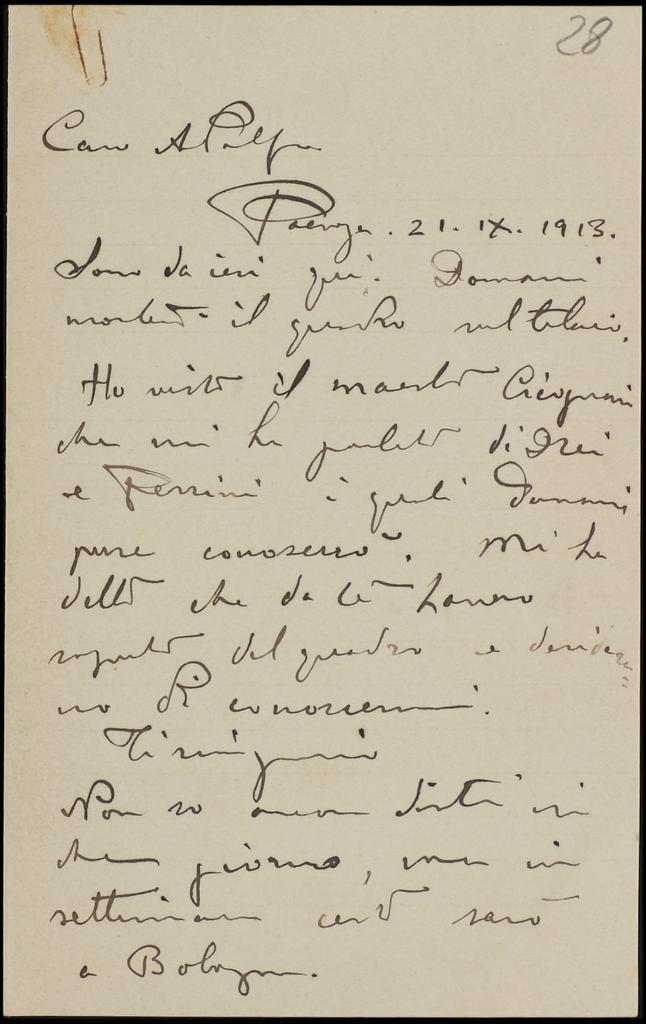 28
Caro Adolfo
Faenza. 21. IX. 1913.
Sono da ieri qui. Domani
monterò il quadro sul telaio.
Ho visto il maestro Cicognani
che mi ha parlato di Drei
e Perrini i quali Domani
pure conoscerò. Mi ha
detto che da te hanno
saputo del quadro e desidera=
no di conoscermi.
Ti ringrazio
Non so ancora dirti in
che giorno, ma in
settimana certo sarò
a Bologna.